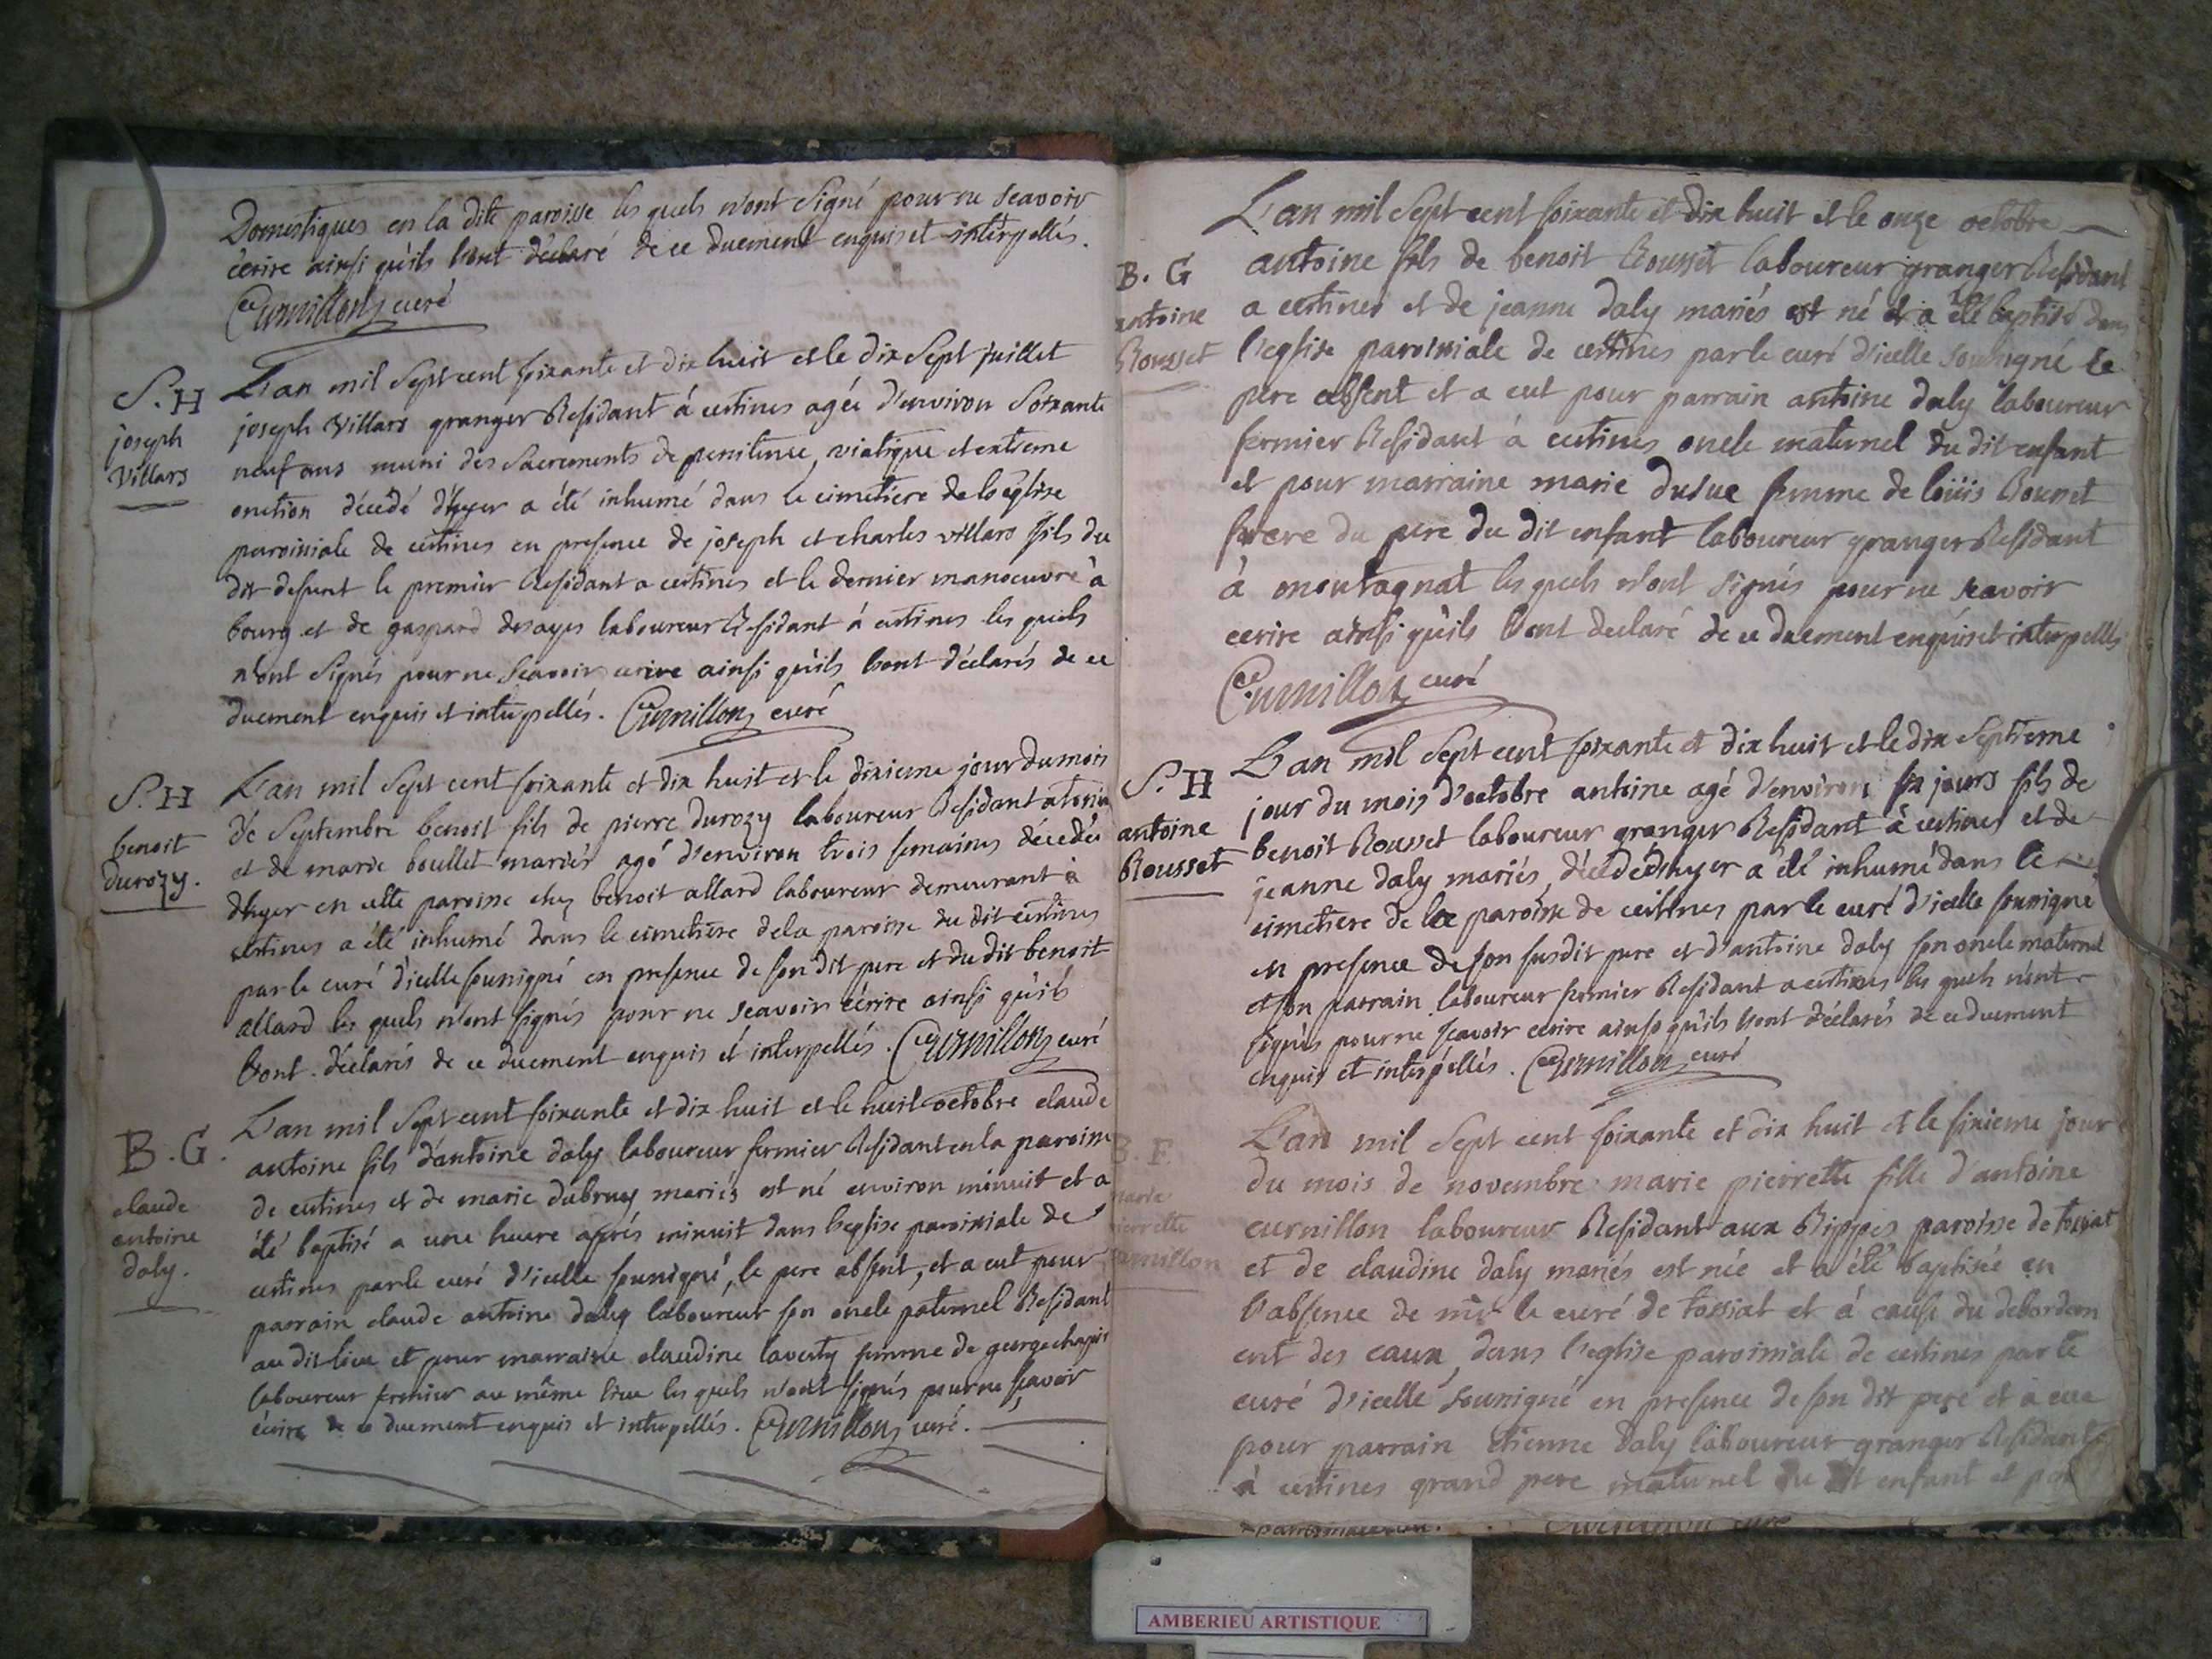 Domestiques en la dite paroisse les quels n'ont signé pour ne scavoir
ècrire ainsi qu'ils l'ont déclaré de ce duement enquis et interpellés.
Curnillon curé
S. H
joseph
Villars
L'an mil sept cent soixante et dix huit et le dix sept juillet
joseph villars granger Residant á certines agée d'environ soixante
neuf ans muni des sacrements de penitence, viatique et extreme
onction décédé d'hyer a été inhumé dans le cimetiere de l'eglise
paroissiale de certines en presence de joseph et charles villars fils du
dit defunt le premier Residant a certines et le dernier manoeuvre à
bourg et de gaspard desayes laboureur Residant á certines les quels
n'ont signés pour ne scavoir ecrire ainsi qu'ils l'ont déclarés de ce
duement enquis et interpellés. Curnillon curé
S. H
benoit
durozy.
L'an mil sept cent soixante et dix huit et le dixieme jour du mois
de septembre benoit fils de pierre durozy laboureur Residant
et de marie boullet mariés agé d'environ trois semaines décedée
d'hyer en cette paroisse chez benoit allard laboureur demeurant à
certines a été inhumé dans le cimetiere de la paroisse du dit certines
par le curé d'icelle soussigné en presence de son dit pere et du dit benoit
allard les quels n'ont signés pour ne scavoir écrire ainsi qu'ils
l'ont déclarés de ce duement enquis et interpellés. Curnillon curé
B. G.
claude
antoine
daly.
L'an mil sept cent soixante et dix huit et le huit octobre claude
antoine fils d'antoine daly laboureur fermier Residant en la paroisse
de certines et de marie dubruy mariés est né environ minuit et a
été baptisé a une heure aprés minuit dans l'eglise paroissiale de
certines par le curé d'icelle soussigné, le pere absent, et a eut pour
parrain claude antoine daly laboureur son oncle paternel Residant
au dit lieu et pour marraine claudine laverty femme de george chapis
laboureur fermier au même lieu les quels n'ont signés pour ne scavoir
écrire de ce duement enquis et interpellés. Curnillon curé.
B. G
antoine
Rousset
L'an mil sept cent soixante et dix huit et le onze octobre
antoine fils de benoit Rousset laboureur granger Residant
a certines et de jeanne daly mariés est né et a été baptisé dans
l'eglise paroissiale de certines par le curé d'icelle soussigné le
pere absent et a eut pour parrain antoine daly laboureur
fermier Residant á certines oncle maternel du dit enfant
et pour marraine marie dusuc femme de loüis Rousset
frere du pere du dit enfant laboureur granger Residant
à montagnat les quels n'ont signés pour ne scavoir
ecrire ainsi qu'ils l'ont declaré de ce duement enquis et interpellés
Curnillon curé
S. H
antoine
Rousset
L'an mil sept cent soixante et dix huit et le dix septieme
jour du mois d'octobre antoine agé d'environ six jours fils de
benoit Rousset laboureur granger Residant à certines et de
jeanne daly mariés, décédé d'hyer a été inhumé dans le
cimetiere de la paroisse de certines par le curé d'icelle soussigné
en presence de son susdit pere et d'antoine daly son oncle maternel
et son parrain laboureur fermier Residant a certines les quels n'ont
signés pour ne scavoir ecrire ainsi qu'ils l'ont déclarés de ce duement
enquis et interpéllés. Curnillon curé
B. F.
marie
pierrette
curnillon
L'an mil sept cent soixante et dix huit et le sixieme jour
du mois de novembre marie pierrette fille d'antoine
curnillon laboureur Residant aux Rippes paroisse de tossiat
et de claudine daly mariés est née et a été baptisée en
l'absence de mr le curé de tossiat et á cause du debordem
ent des eaux, dans l'eglise paroissiale de certines par le
curé d'icelle soussigné en presence de son dit pere et a eue
pour parrain etienne daly laboureur granger Residant
à certines grand pere maternel du dit enfant et pour
curé
AMBERIEU ARTISTIQUE